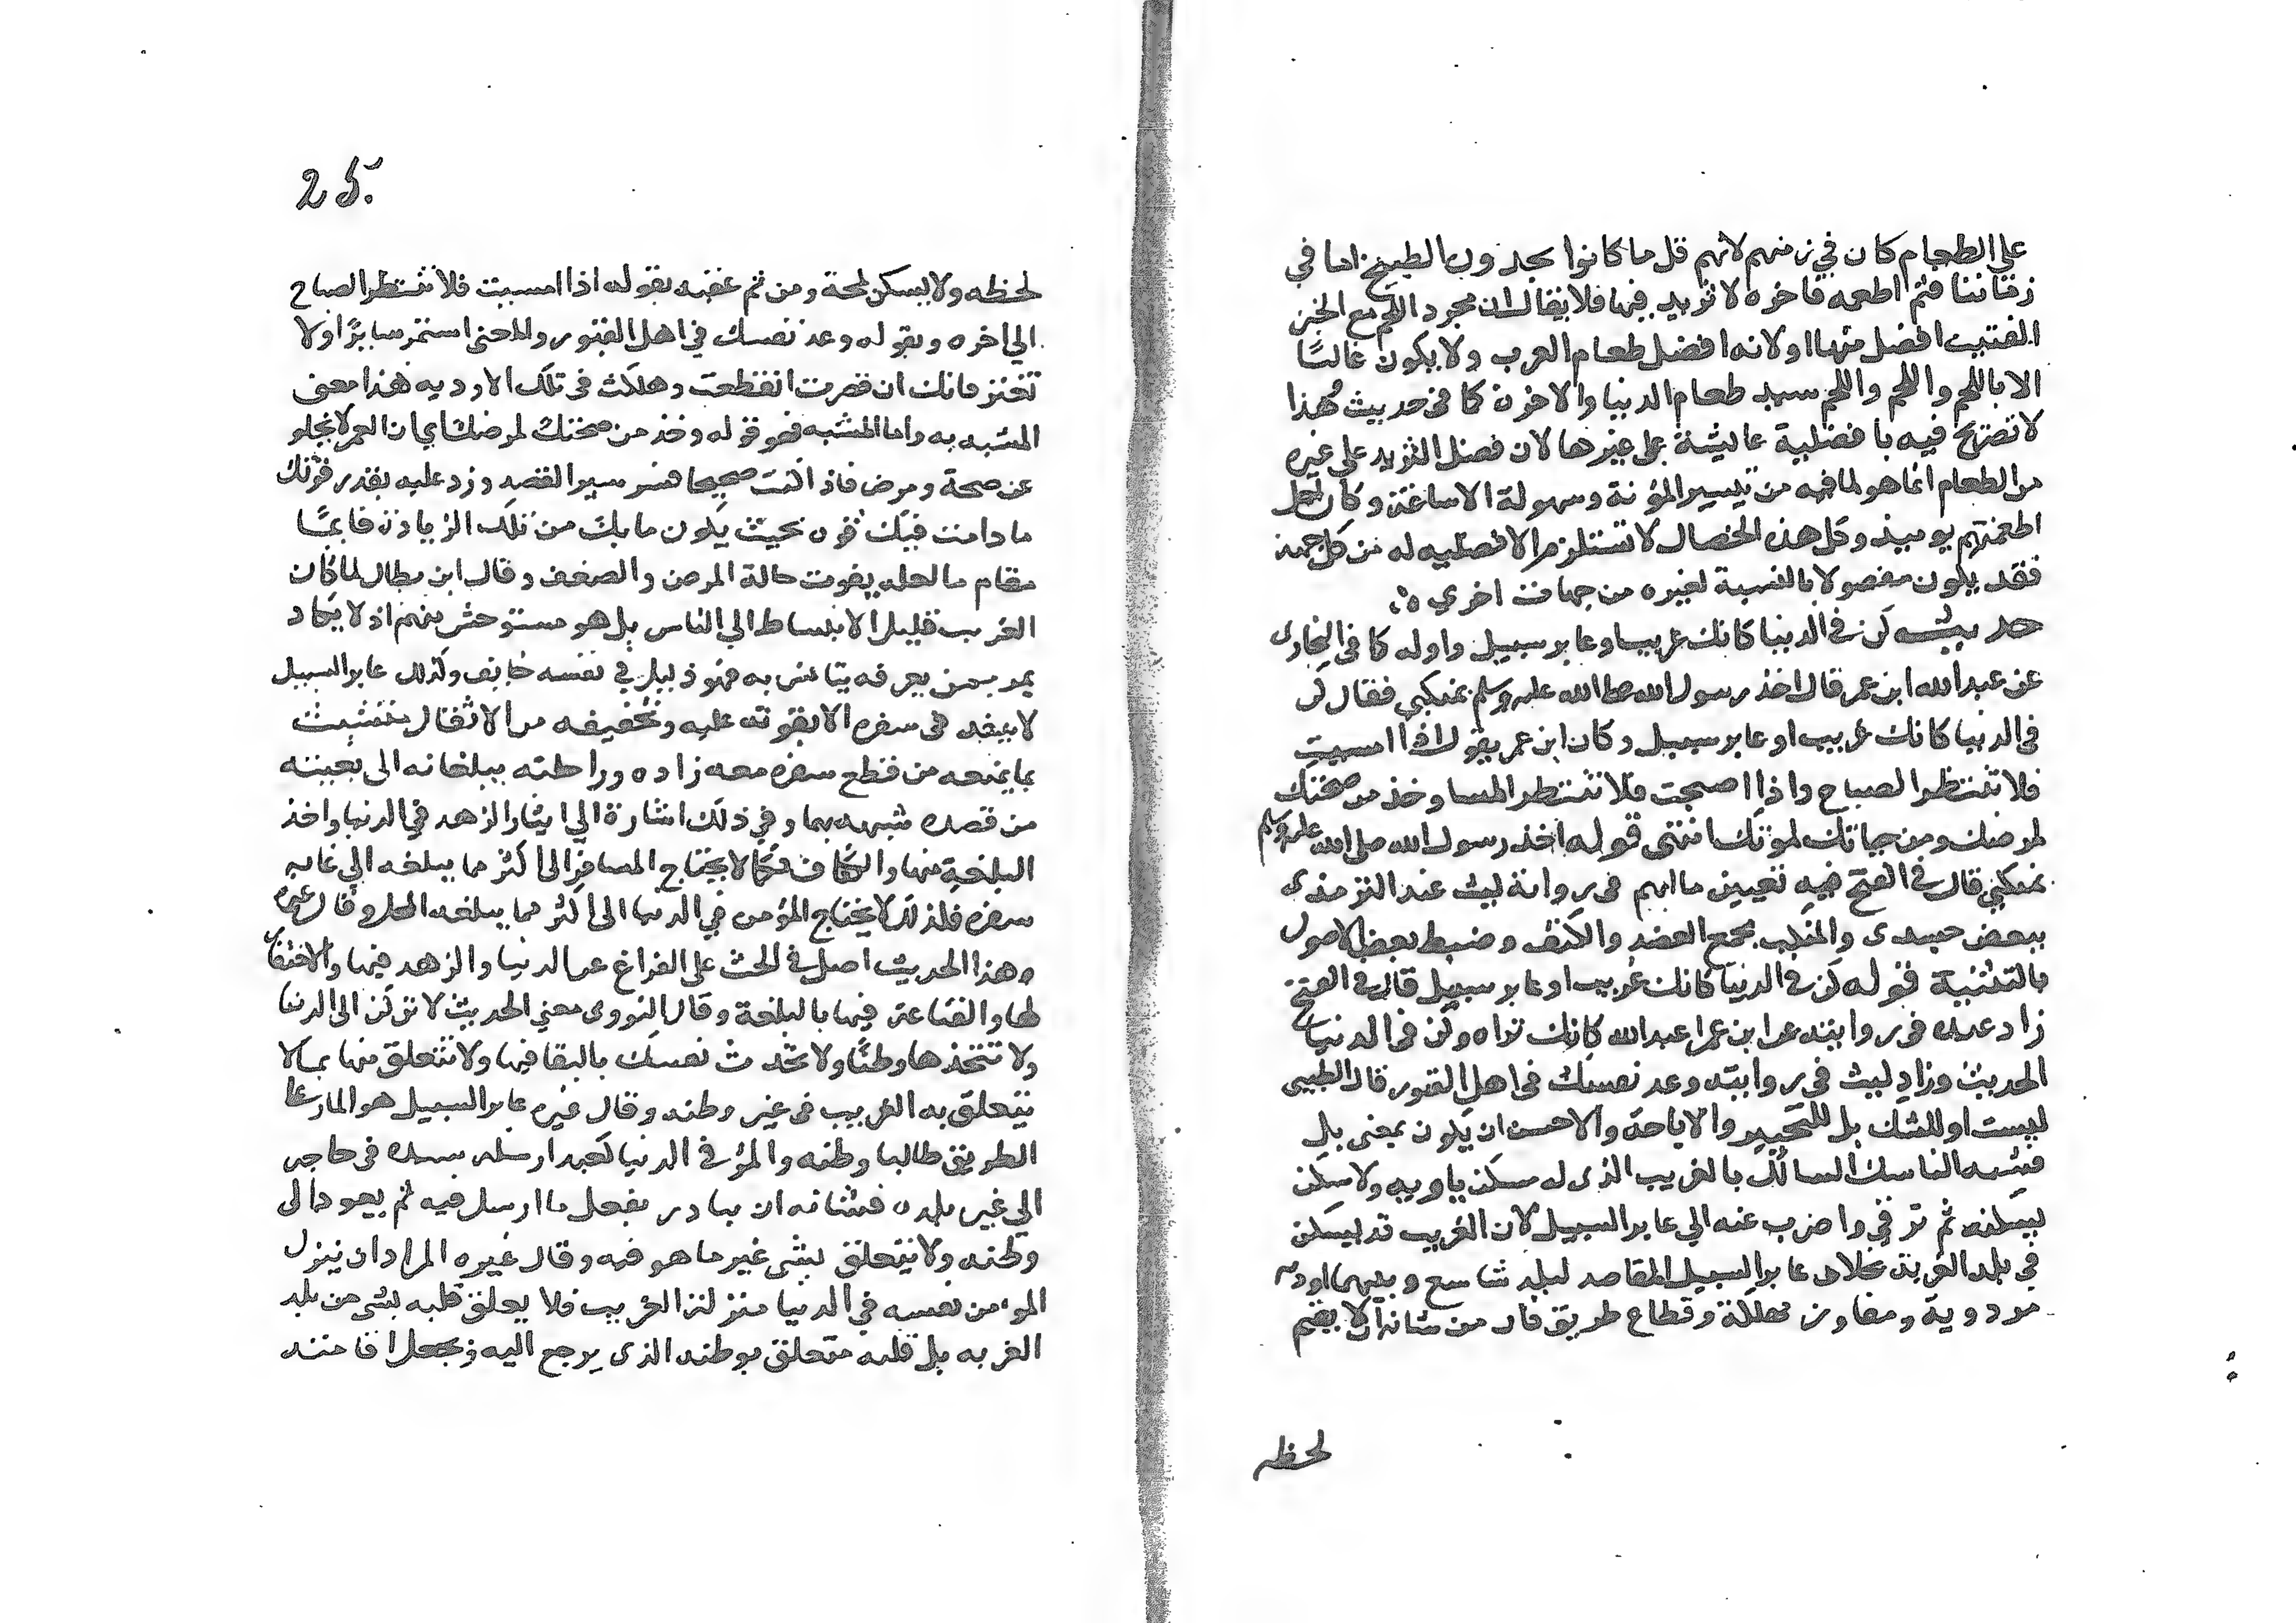 علي الطعام كان في زمنهم لانهم قل ما كانوا يجدون الطبيخ اما في
زماننا فثم اطعمه فاخره لا ثريد فيها فلا يقال ان مجرد اللحم مع الخبز
الفتيت افضل منها اولانه افضل طعام العرب ولا يكون غالبًا
الا باللحم واللحم واللحم سيد طعام الدنيا والاخرة كما في حديث فهذا
لا تصريح فيه بافضلية عايشة على غيرها لان فضل الثريد علي غيره
من الطعام انما هو لما فيه من تيسير المؤنة وسهولة الاساغة وكان اجل
اطعمتهم يوميذ وكل هذه الخصال لا تستلزم الافضليه له من كل جهة
فقد يكون مفضولا بالنسبة لغيره من جهات اخري ه
حديث كن في الدنيا كانك غريب او عابر سبيل واوله كما في البخاري
عن عبد الله ابن عمر قال اخذ رسول الله صلى الله عليه وسلم بمنكبي فقال كن
في الدنيا كانك غريب او عابر سبيل وكان ابن عمر يقول اذا امسيت
فلا تنتظر الصباح واذا اصبحت فلا تنتظر المسا وخذ من صحتك
لمرضك ومن حياتك لموتك انتهى قوله اخذ رسول الله صلى الله عليه وسلم
بمنكبي قال في الفتح فيه تعيين ما ابهم في رواية ليث عند الترمذى
ببعض جسدى والمنكب مجمع العضد والكتف وضبط بعض الاصول
بالتثنية قوله كن في الدنيا كانك غريب او عابر سبيل قال في الفتح
زاد عبده في روايته عن ابن عمر اعبد الله كانك تراه وكن في الدنيا
الحديث وزاد ليث في روايته وعد نفسك في اهل القبور قال الطيبى
ليست او للشك بل للتخيير والاباحة والاحسن ان يكون بمعنى بل
فشبه الناسك السالك بالغريب الذى له مسكن ياويه ولا سكن
يسكنه ثم ترقي واضرب عنه الي عابر السبيل لان الغريب قد يسكن
في بلد الغربة بخلاف عابر السبيل القاصد لبلد شاسع وبينهما اوديه
مردوية ومفاوز مهلكة وقطاع طريق فان من شانه ان لا يقيم
لحظه
25.
لحظه ولا يسكن لمحة ومن ثم عقبه بقوله اذا امسيت فلا تنتظر الصباح
الي اخره وبقوله وعد نفسك في اهل القبور والمعنى استمر سايرًا ولا
تفتر فانك ان قصرت انقطعت وهلكت في تلك الاوديه هذا معنى
المشبه به واما المشبه فهو قوله وخذ من صحتك لمرضك اي ان العمر لا يخلو
عن صحة ومرض فاذا كنت صحيحا فسر سير القصد وزد عليه بقدر قوتك
ما دامت فيك قوه بحيث يكون ما بك من تلك الزيادة قايمًا
مقام ما لعله يفوت حالة المرض والضعف وقال ابن بطال لما كان
الغريب قليل الانبساط الي الناس بل هو مستوحش منهم اذ لا يكاد
يمر بمن يعرفه يتانس به فهو ذليل في نفسه خايف وكذلك عابر السبيل
لا ينفد في سفره الا بقوته عليه وتخفيفه من الاثقال متشبث
بما يمنعه من قطع سفره معه زاده وراحلته يبلغانه الى بغيته
من قصده شبهه بهما وفي ذلك اشارة الي ايثار الزهد في الدنيا واخذ
البلغة منها والكفاف فكما لا يحتاج المسافر الى اكثر مما يبلغه الي غايه
سفره فلذلك لا يحتاج المؤمن في الدنيا الى اكثر مما يبلغه المحل وقال غيره
وهذا الحديث اصل في الحث على الفراغ عن الدنيا والزهد فيها والاحتقار
لها والقناعة فيها بالبلغة وقال النووى معني الحديث لا تركن الى الدنيا
ولا تتخذها وطنًا ولا تحدث نفسك بالبقا فيها ولا تتعلق منها بما لا
يتعلق به الغريب في غير وطنه وقال غيره عابر السبيل هو المار على
الطريق طالبا وطنه والمرؤ في الدنيا كعبد ارسله سيده في حاجه
الي غير بلده فشانه ان يبادر بفعل ما ارسل فيه ثم يعود الى
وطنه ولا يتعلق بشى غير ما هو فيه وقال غيره المراد ان ينزل
المومن نفسه في الدنيا منزلة الغريب فلا يعلق قلبه بشى من بلد
الغربه بل قلبه متعلق بوطنه الذى يرجع اليه ويجعل اقامته